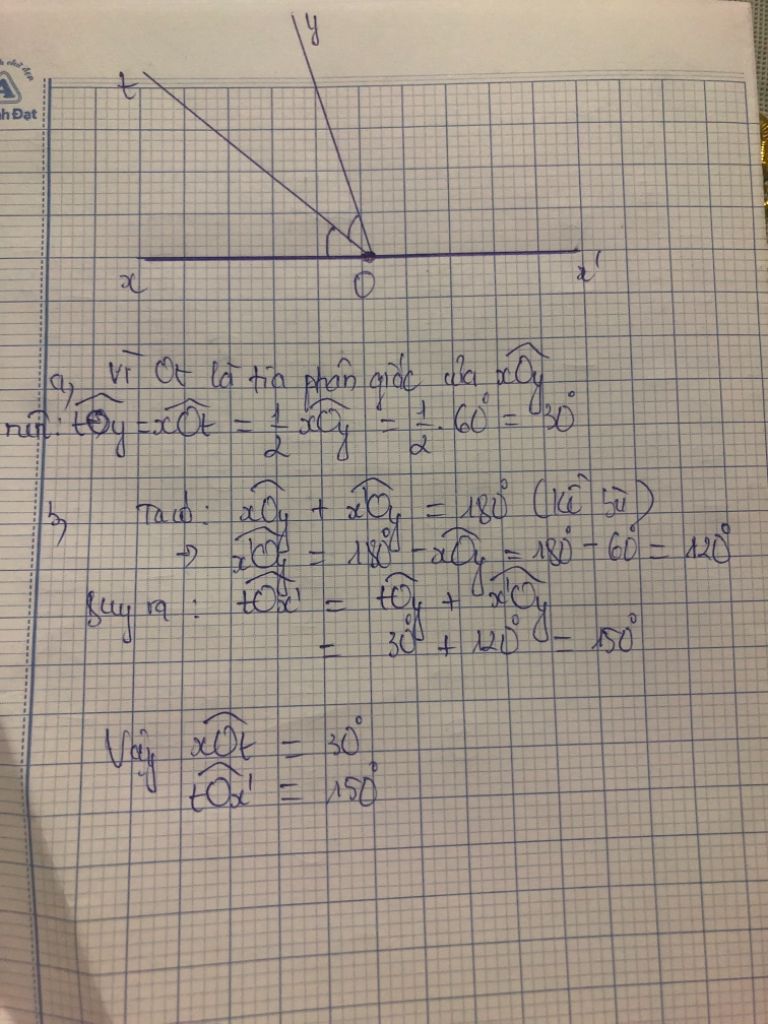 y
t
x
O
x'
h Đạt
a, Vì Ot là tia phân giác của xOy
nên: tOy = xOt = 1/2 xOy = 1/2 . 60° = 30°
b, Ta có: xOy + x'Oy = 180° (kề bù)
→ x'Oy = 180° - xOy = 180° - 60° = 120°
Suy ra: tOx' = tOy + x'Oy
= 30° + 120° = 150°
Vậy xOt = 30°
tOx' = 150°